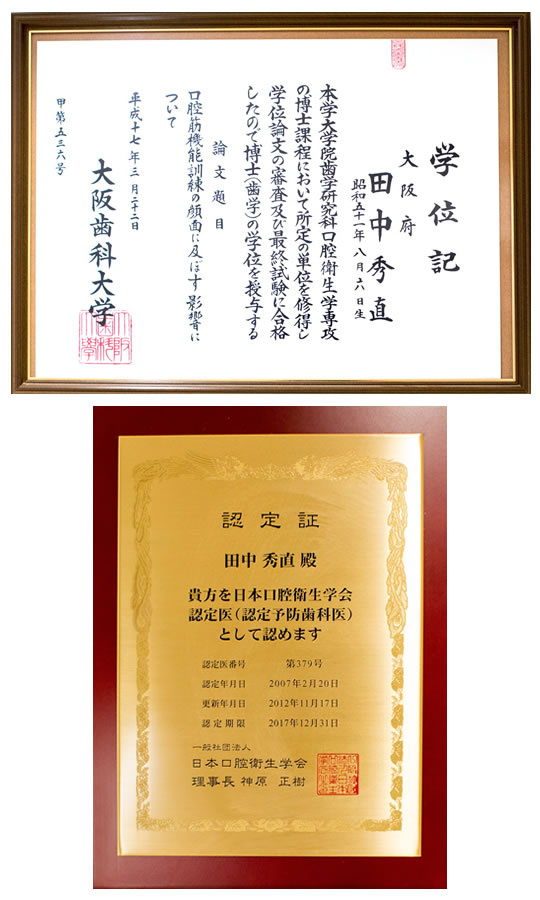 学位記
大阪府
田中秀直
昭和五十一年八月六日生
本学大学院歯学研究科口腔衛生学専攻
の博士課程において所定の単位を修得し
学位論文の審査及び最終試験に合格
したので博士(歯学)の学位を授与する
論文題目
口腔筋機能訓練の顔面に及ぼす影響に
ついて
平成十七年三月二十二日
大阪歯科大学
甲第五三六号
認定証
田中 秀直 殿
貴方を日本口腔衛生学会
認定医(認定予防歯科医)
として認めます
認定医番号 第379号
認定年月日 2007年2月20日
更新年月日 2012年11月17日
認定期限 2017年12月31日
一般社団法人
日本口腔衛生学会
理事長 神原 正樹